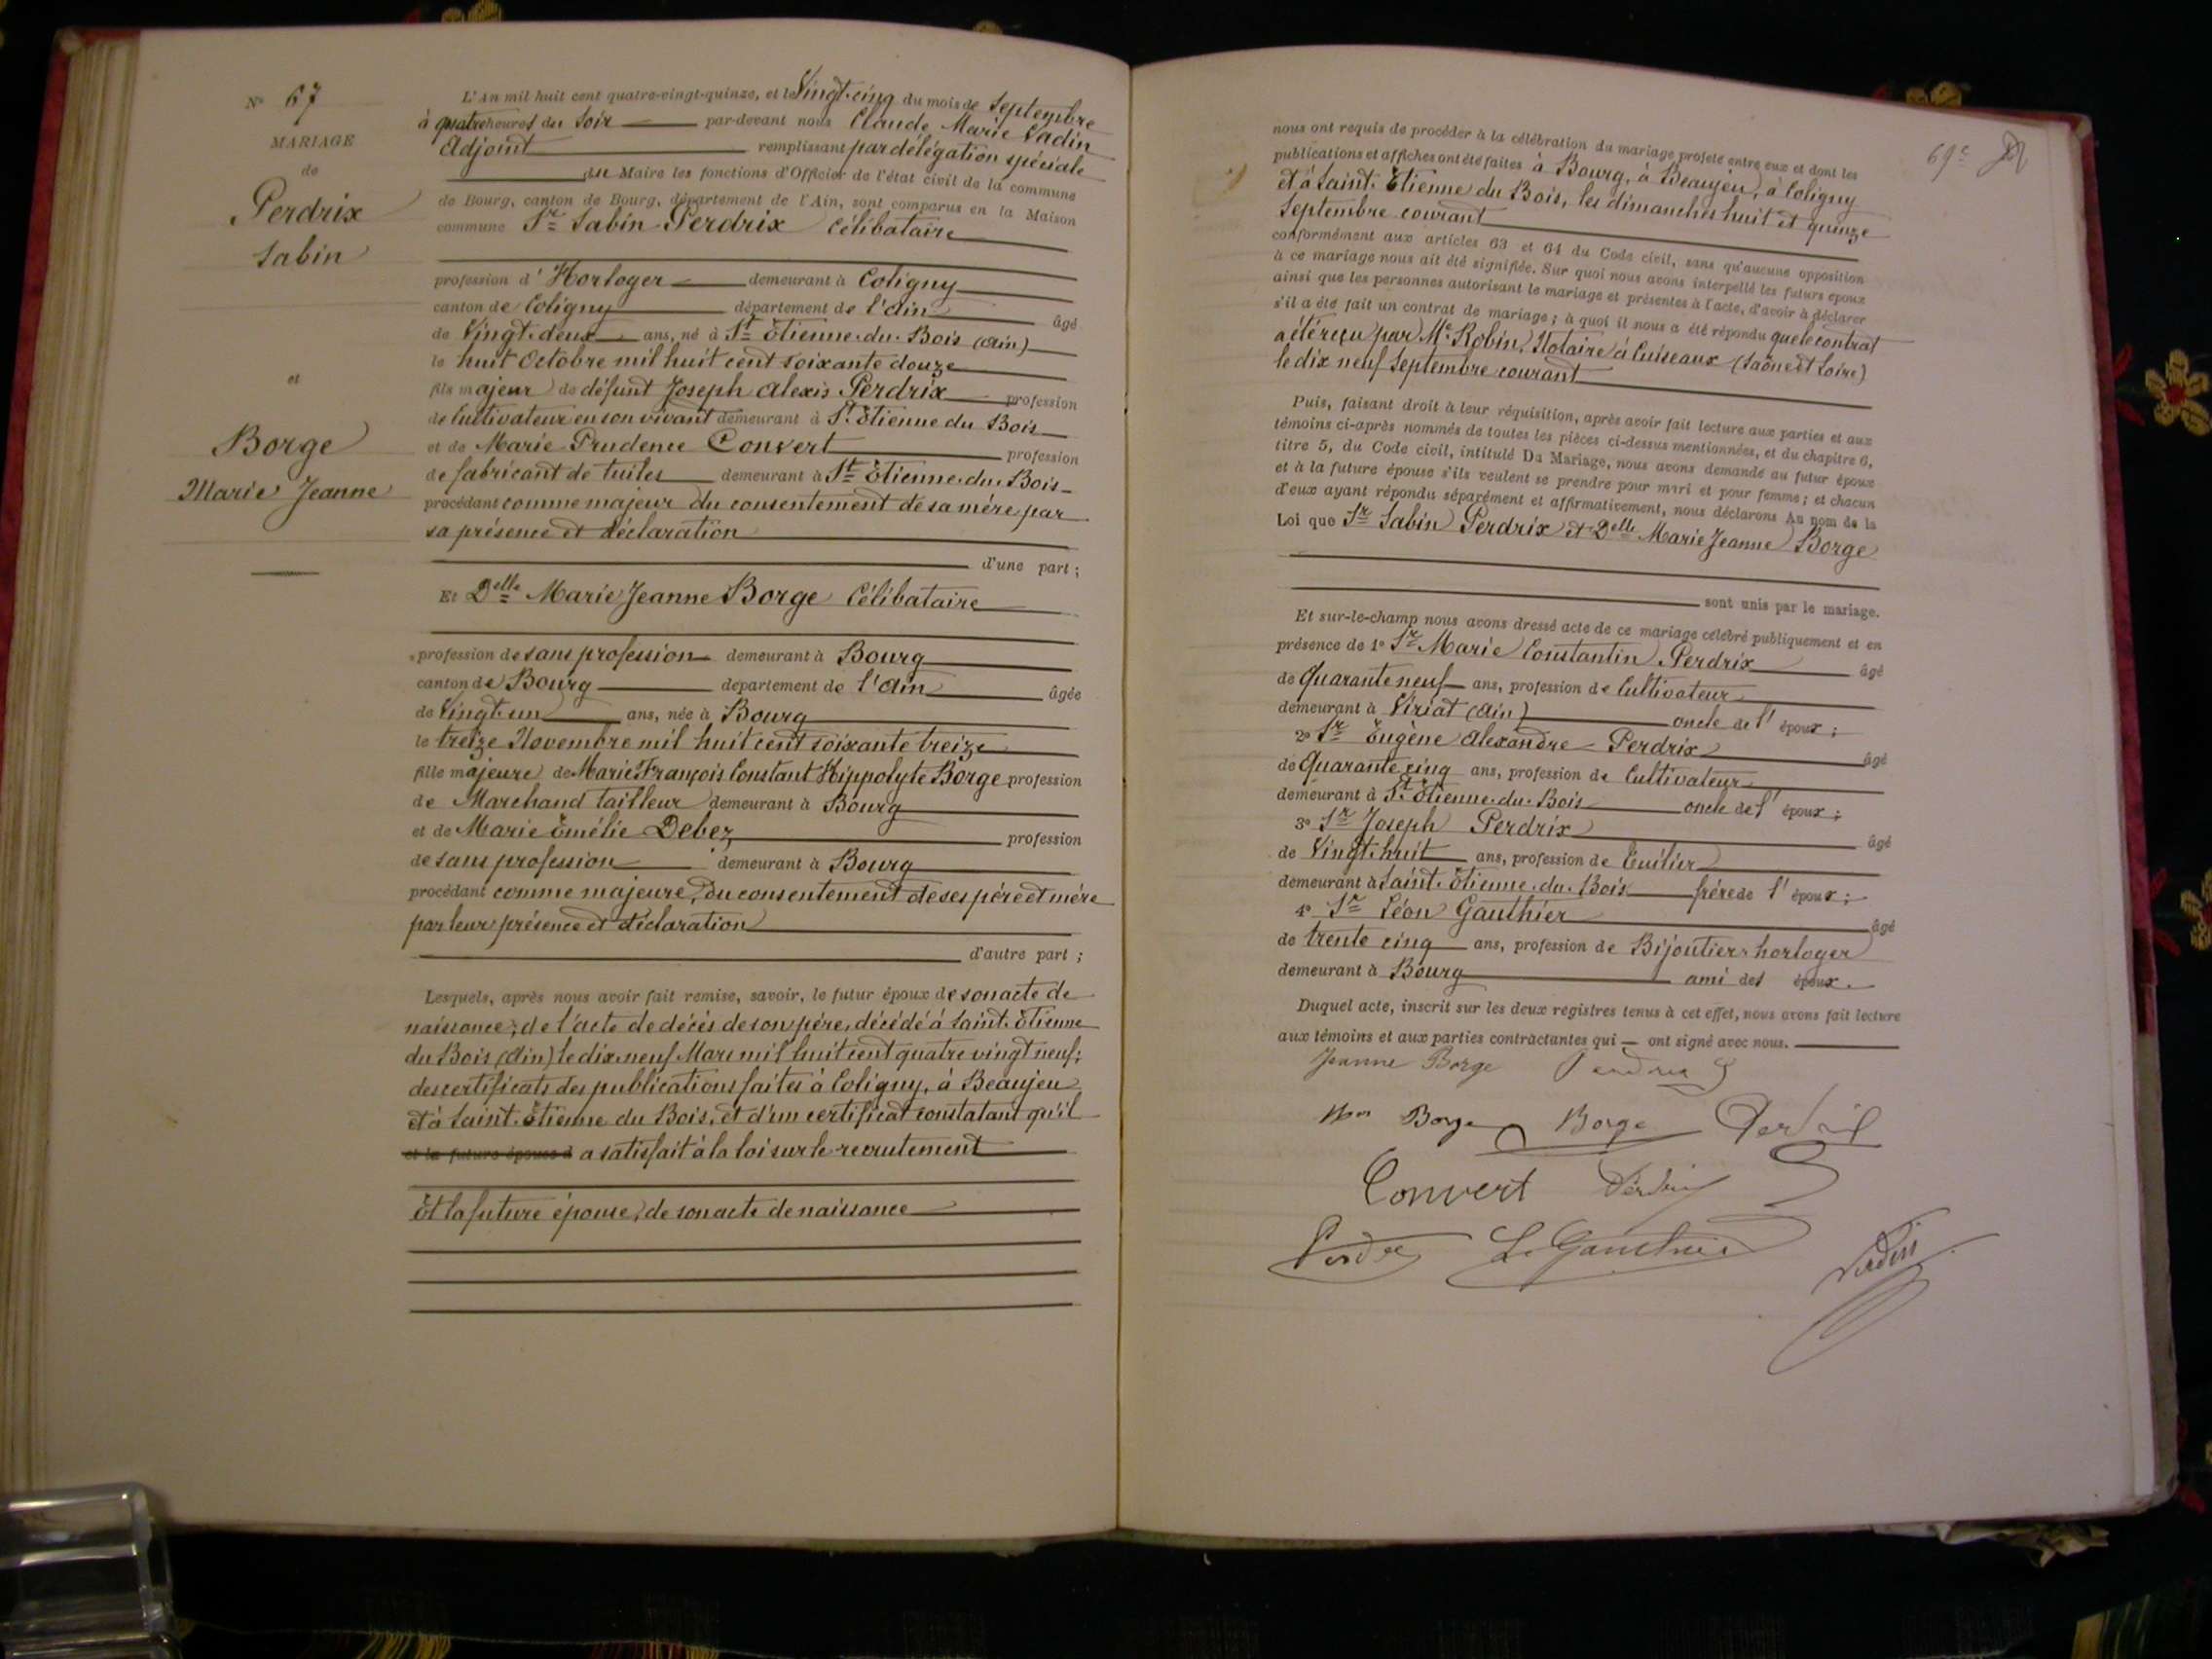 N° 67
MARIAGE
de
Perdrix
Sabin
et
Borge
Marie Jeanne
L'An mil huit cent quatre-vingt-quinze, et le Vingt-cinq du mois de Septembre
à quatre heures du Soir par-devant nous Claude Marie Vadin
Adjoint remplissant par délégation spéciale
du Maire les fonctions d'Officier de l'état civil de la commune
de Bourg, canton de Bourg, département de l'Ain, sont comparus en la Maison
commune Sr Sabin Perdrix Célibataire
profession d' Horloger demeurant à Coligny
canton de Coligny département de l'Ain âgé
de Vingt-deux ans, né à St Etienne-du-Bois (Ain)
le huit Octobre mil huit cent soixante douze
fils majeur de défunt Joseph Alexis Perdrix profession
de Cultivateur en son vivant demeurant à St Etienne du Bois
et de Marie Prudence Convert profession
de fabricant de tuiles demeurant à St Etienne-du-Bois
procédant comme majeur du consentement de sa mère par
sa présence et déclaration
d'une part ;
Et Delle Marie Jeanne Borge Célibataire
profession de sans profession demeurant à Bourg
canton de Bourg département de l'Ain âgée
de Vingt-un ans, née à Bourg
le treize Novembre mil huit cent soixante treize
fille majeure de Marie François Constant Hippolyte Borge profession
de Marchand tailleur demeurant à Bourg
et de Marie Emélie Debez profession
de sans profession demeurant à Bourg
procédant comme majeure, du consentement de ses père et mère
par leur présence et déclaration
d'autre part ;
Lesquels, après nous avoir fait remise, savoir, le futur époux de son acte de
naissance ; de l'acte de décès de son père, décédé à Saint-Etienne
du Bois (Ain) le dix-neuf Mars mil huit cent quatre vingt neuf ;
des certificats des publications faites à Coligny, à Beaujeu
et à Saint-Etienne du Bois, et d'un certificat constatant qu'il
et la future épouse d a satisfait à la loi sur le recrutement
Et la future épouse, de son acte de naissance
69e
nous ont requis de procéder à la célébration du mariage projeté entre eux et dont les
publications et affiches ont été faites à Bourg, à Beaujeu, à Coligny
et à Saint-Etienne du Bois, les dimanches huit et quinze
Septembre courant
conformément aux articles 63 et 64 du Code civil, sans qu'aucune opposition
à ce mariage nous ait été signifiée. Sur quoi nous avons interpellé les futurs époux
ainsi que les personnes autorisant le mariage et présentes à l'acte, d'avoir à déclarer
s'il a été fait un contrat de mariage ; à quoi il nous a été répondu que le contrat
a été reçu par Me Robin, Notaire à Cuiseaux (Saône et Loire)
le dix neuf Septembre courant
Puis, faisant droit à leur réquisition, après avoir fait lecture aux parties et aux
témoins ci-après nommés de toutes les pièces ci-dessus mentionnées, et du chapitre 6,
titre 5, du Code civil, intitulé Du Mariage, nous avons demandé au futur époux
et à la future épouse s'ils veulent se prendre pour mari et pour femme ; et chacun
d'eux ayant répondu séparément et affirmativement, nous déclarons Au nom de la
Loi que Sr Sabin Perdrix et Delle Marie Jeanne Borge
sont unis par le mariage.
Et sur-le-champ nous avons dressé acte de ce mariage célébré publiquement et en
présence de 1° Sr Marie Constantin Perdrix âgé
de Quarante neuf ans, profession de Cultivateur
demeurant à Viriat (Ain) oncle de l' époux ;
2° Sr Eugène Alexandre Perdrix âgé
de Quarante cinq ans, profession de Cultivateur
demeurant à St Etienne-du-Bois oncle de l' époux ;
3° Sr Joseph Perdrix âgé
de Vingt-huit ans, profession de Tuilier
demeurant à Saint-Etienne-du-Bois frère de l' époux ;
4° Sr Léon Gauthier âgé
de trente cinq ans, profession de Bijoutier-horloger
demeurant à Bourg ami des époux.
Duquel acte, inscrit sur les deux registres tenus à cet effet, nous avons fait lecture
aux témoins et aux parties contractantes qui ont signé avec nous.
Jeanne Borge Perdrix S
Borge Borge Perdrix
Convert Perdrix
Perdrix L. Gauthier
Vadin